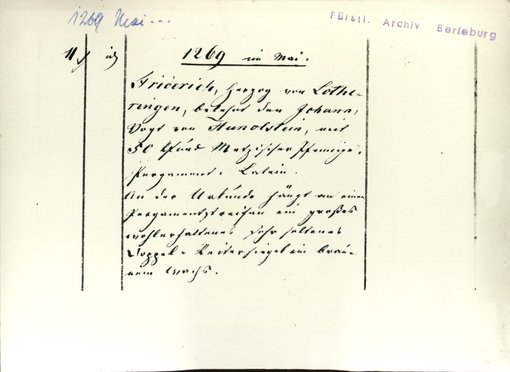 1269 Mai...
Fürstl. Archiv Berleburg
1269 im Mai.
Friderich, Herzog von Lothe-
ringen, belehnt den Johann,
Vogt von Hunolstein, mit
50 Pfund Metzischer Pfennige.
Pergament. Latein.
An der Urkunde hängt an einem
Pergamentstreifen ein großes
wohlerhaltenes sehr seltenes
Doppel-Reitersiegel in brau-
nem Wachs.